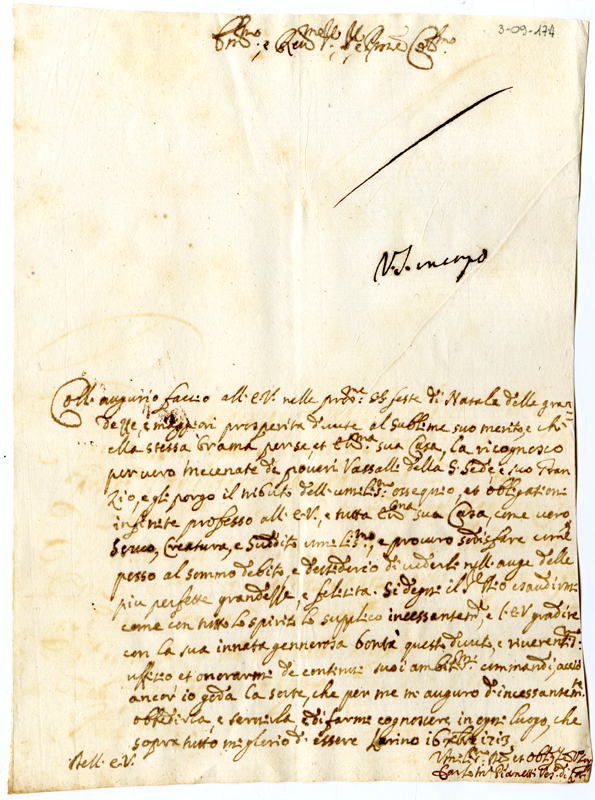 3-09-174
Em.mo, e Rev.mo Sig.re Sig.re e P'rone Col.mo
Coll'augurio faccio all'E.V. nelle pros.me SS. feste di Natale delle gran
dezze, e maggiori prosperità dovute al sublime suo merito, e ch'
ella stessa brama per se, et Ecc.ma sua Casa, la ricognosco
per vero mecenate de poveri Vassalli della S. Sede, e suo
e gli porgo il tributo dell'umiliss.o ossequio, et obligationi
infinite professo all'E.V., e tutta Ecc.ma sua Casa, come vero
Servo, Creatura, e Suddito umiliss.mo, e procuro sodisfare
al sommo debito, e desiderio di vederla nell'auge delle
più perfette grandezze, e felicità. Si degni il Sig.re Iddio esaudirmi
come con tutto lo spirito lo supplico incessantem.te, e l'E.V. gradire
con la sua innata gennerosa bontà questo dovuto, e riverentiss.o
uffizio et onorarmi de continui suoi ambitiss.mi commandi, acciò
ancor io goda la sorte, che per me mi auguro d'incessantem.te
obbedirla, e servirla e di farmi cognoscere in ogni luogo, che
sopra tutto mi glorio di essere Larino 16 Xbre 1713
Dell'E.V.
Umiliss.o et Obl.mo
Carlo M.a Pianetti Ves.o di